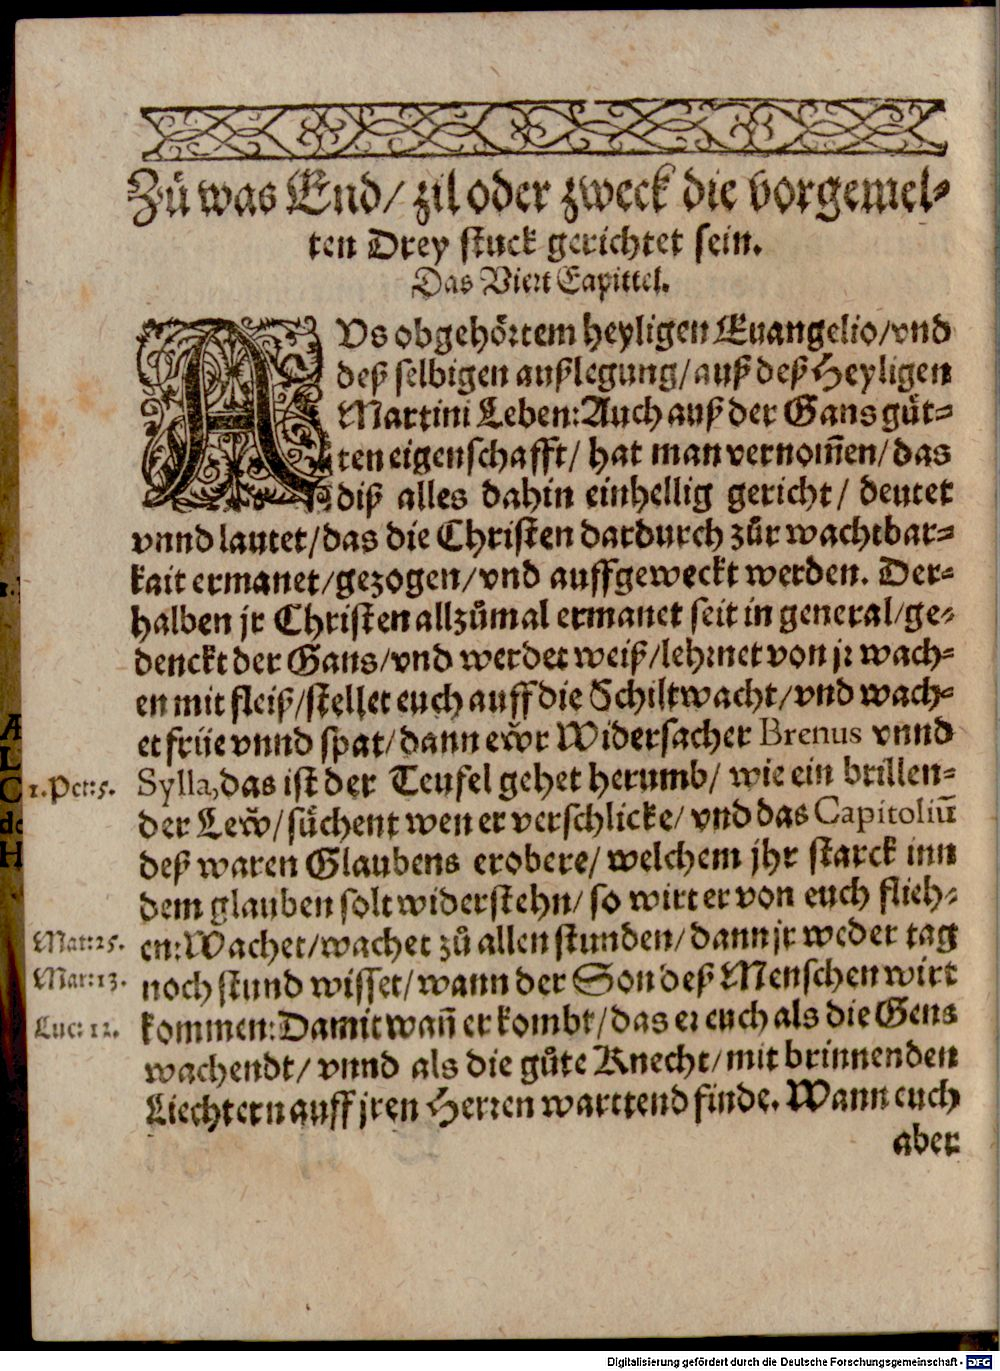 Zů was End/ zil oder zweck die vorgemel-
ten Drey stuck gerichtet sein.
Das Viert Capittel.
AVs obgehörtem heyligen Euangelio/ vnd
deß selbigen außlegung/ auß deß Heyligen
Martini Leben: Auch auß der Gans gůt-
ten eigenschafft/ hat man vernom̄en/ das
diß alles dahin einhellig gericht/ deutet
vnnd lautet/ das die Christen dardurch zůr wachtbar-
kait ermanet/ gezogen/ vnd auffgeweckt werden. Der-
halben jr Christen allzůmal ermanet seit in general/ ge-
denckt der Gans/ vnd werdet weiß/ lehrnet von jr wach-
en mit fleiß/ stellet euch auff die Schiltwacht/ vnd wach-
et früe vnnd spat/ dann ewr̆ Widersacher Brenus vnnd
1. Pet: 5. Sylla, das ist der Teufel gehet herumb/ wie ein brillen-
der Lew̆/ sůchent wen er verschlicke/ vnd das Capitoliū
deß waren Glaubens erobere/ welchem jhr starck inn
dem glauben solt widerstehn/ so wirt er von euch flieh-
Mat: 25. en: Wachet/ wachet zů allen stunden/ dann jr weder tag
Mar: 13. noch stund wisset/ wann der Son deß Menschen wirt
Luc: 12. kommen: Damit wan̄ er kombt/ das er euch als die Gens
wachendt/ vnnd als die gůte Knecht/ mit brinnenden
Liechtern auff jren Herren warttend finde. Wann euch
aber
Digitalisierung gefördert durch die Deutsche Forschungsgemeinschaft - DFG